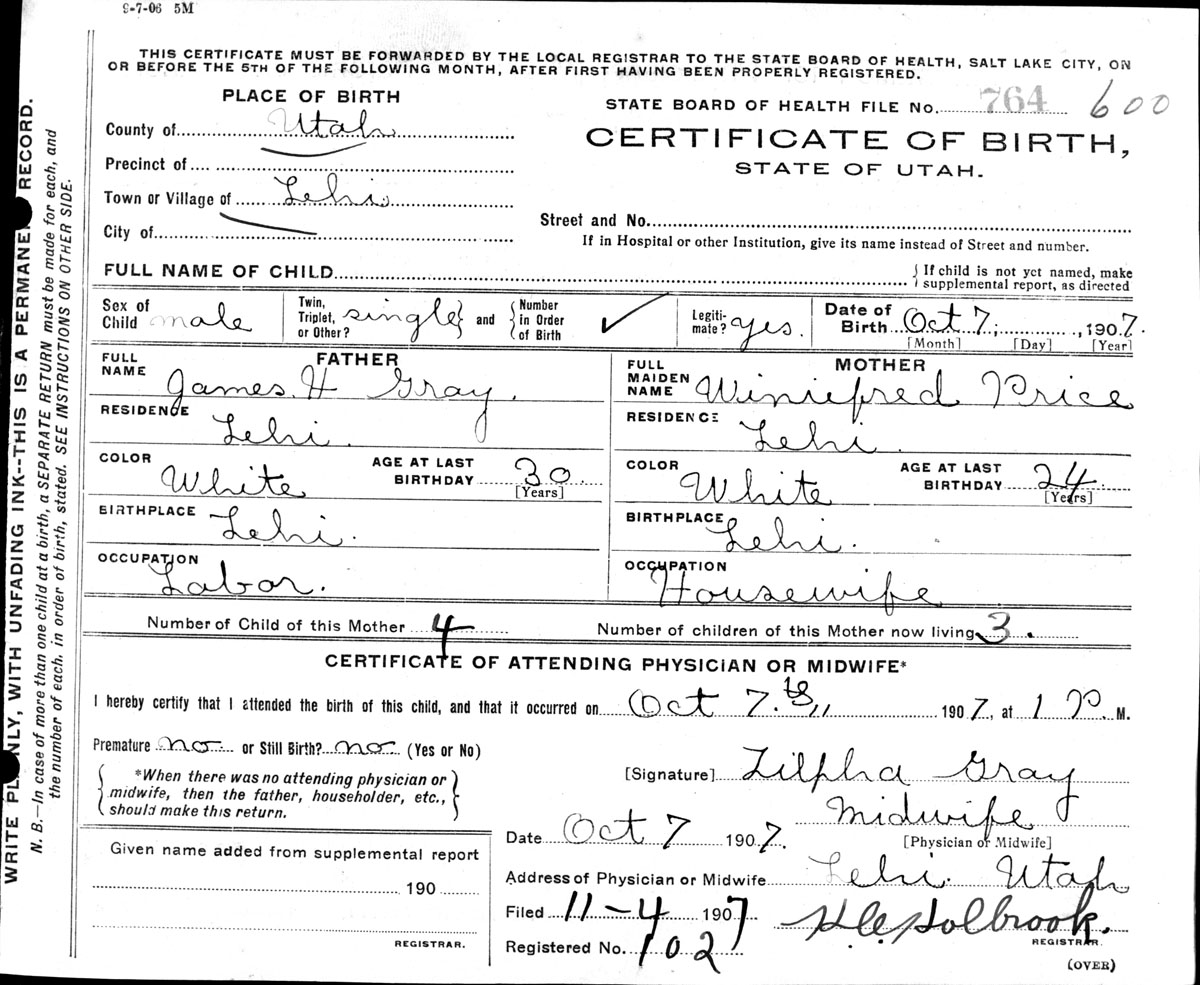 9-7-06 5M
THIS CERTIFICATE MUST BE FORWARDED BY THE LOCAL REGISTRAR TO THE STATE BOARD OF HEALTH, SALT LAKE CITY, ON
OR BEFORE THE 5TH OF THE FOLLOWING MONTH, AFTER FIRST HAVING BEEN PROPERLY REGISTERED.
WRITE ONLY, WITH UNFADING INK--THIS IS A RECORD.
N. B.—In case of more than one child at a birth, a SEPARATE RETURN must be made for each, and
the number of each, in order of birth, stated. SEE INSTRUCTIONS ON OTHER SIDE.
PLACE OF BIRTH
County of Utah
Precinct of
Town or Village of Lehi
City of
STATE BOARD OF HEALTH FILE No. 764 600
CERTIFICATE OF BIRTH,
STATE OF UTAH.
Street and No.
If in Hospital or other Institution, give its name instead of Street and number.
FULL NAME OF CHILD { If child is not yet named, make
supplemental report, as directed
Sex of Child male Twin, Triplet, or Other? single } and { Number in Order of Birth ✓ Legiti-mate? yes. Date of Birth Oct 7, , 1907.
[Month] [Day] [Year]
FATHER
FULL NAME James H Gray.
RESIDENCE Lehi.
COLOR White AGE AT LAST BIRTHDAY 30
[Years]
BIRTHPLACE Lehi.
OCCUPATION Labor.
MOTHER
FULL MAIDEN NAME Winiefred Price
RESIDENCE Lehi.
COLOR White AGE AT LAST BIRTHDAY 24
[Years]
BIRTHPLACE Lehi.
OCCUPATION Housewife
Number of Child of this Mother 4 Number of children of this Mother now living 3.
CERTIFICATE OF ATTENDING PHYSICIAN OR MIDWIFE*
I hereby certify that I attended the birth of this child, and that it occurred on Oct 7.th 1907, at 1 P. M.
Premature no or Still Birth? no (Yes or No)
{ *When there was no attending physician or
midwife, then the father, householder, etc.,
should make this return. }
[Signature] Zilpha Gray
Midwife
[Physician or Midwife]
Date Oct 7 1907.
Address of Physician or Midwife Lehi. Utah
Filed 11-4 1907
Registered No. 102
H.C. Holbrook.
REGISTRAR.
(OVER)
Given name added from supplemental report
190
REGISTRAR.